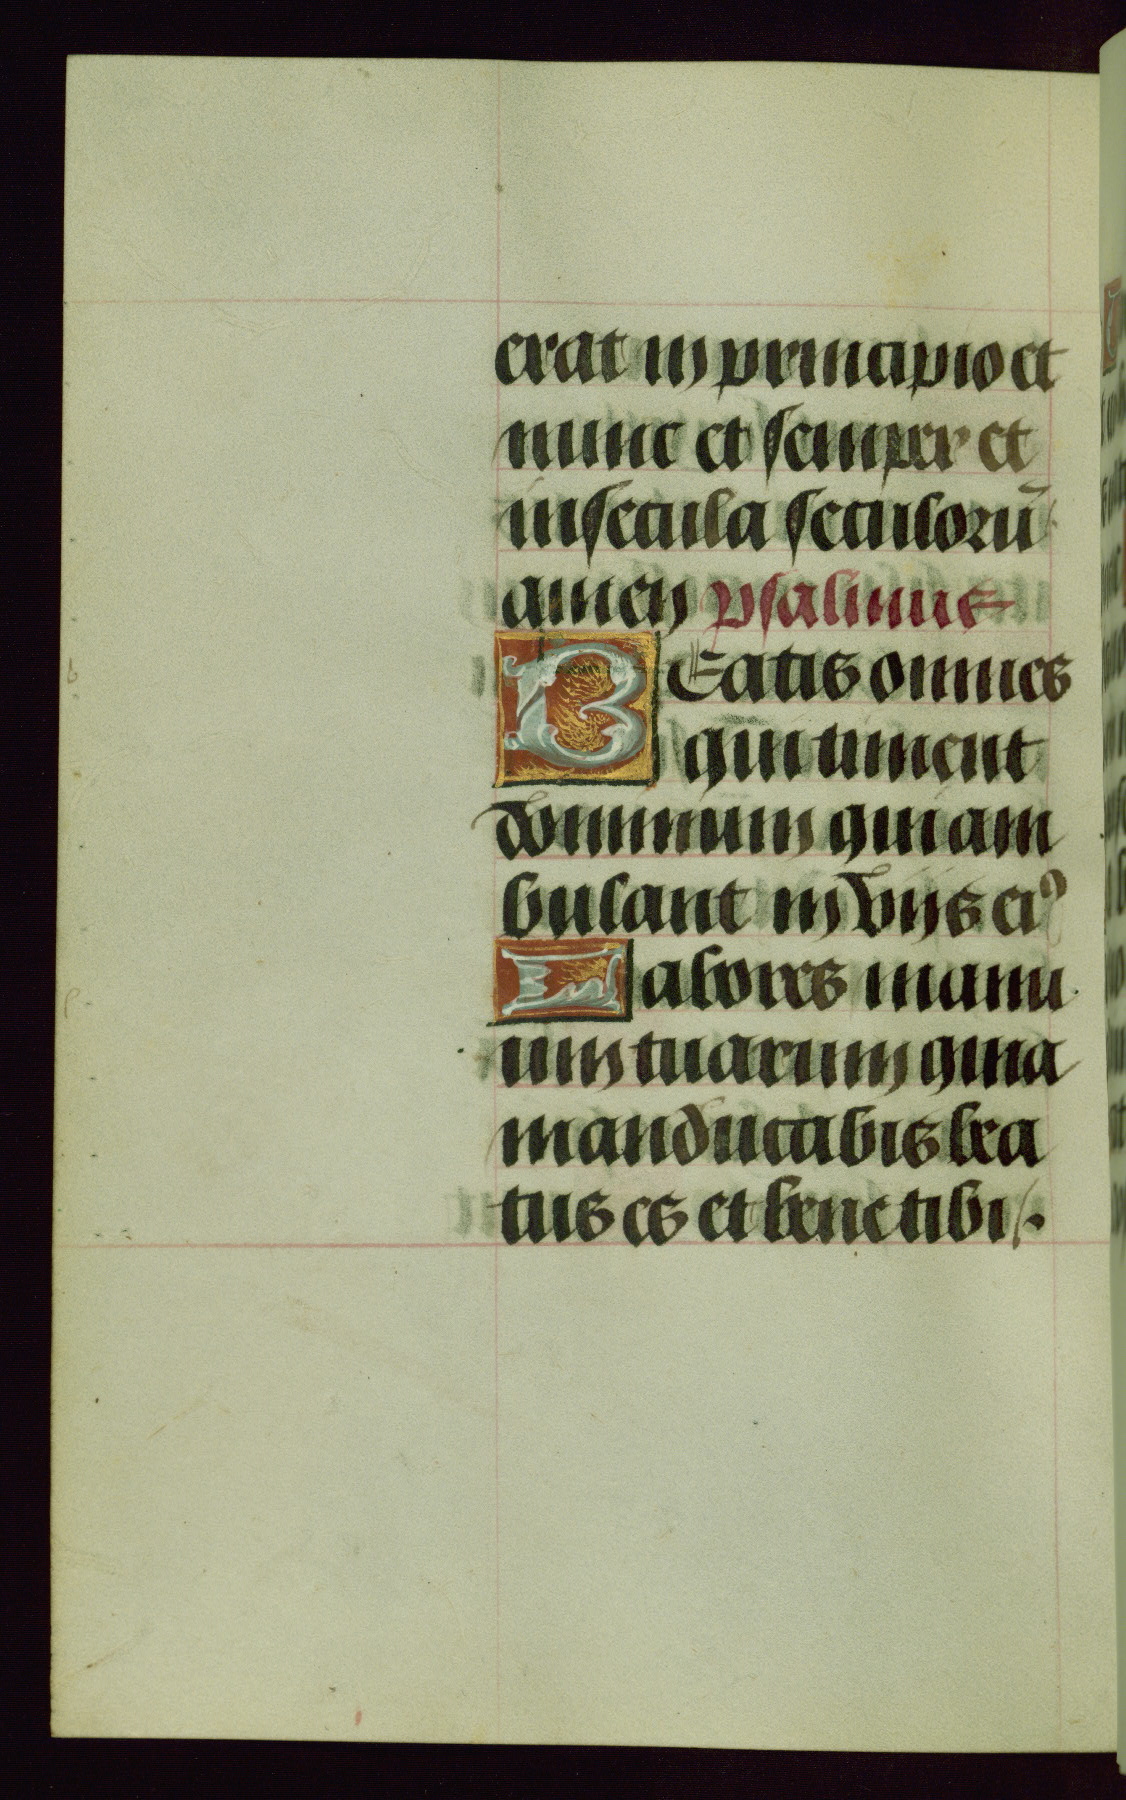 erat in principio et
nunc et semper et
in secula seculorũ
amen psalmus
BEatis omnes
qui timent
dominum qui am
bulant in viis eiꝰ
Labores manu
um tuarum quia
manducabis bea
tus es et bene tibi /.